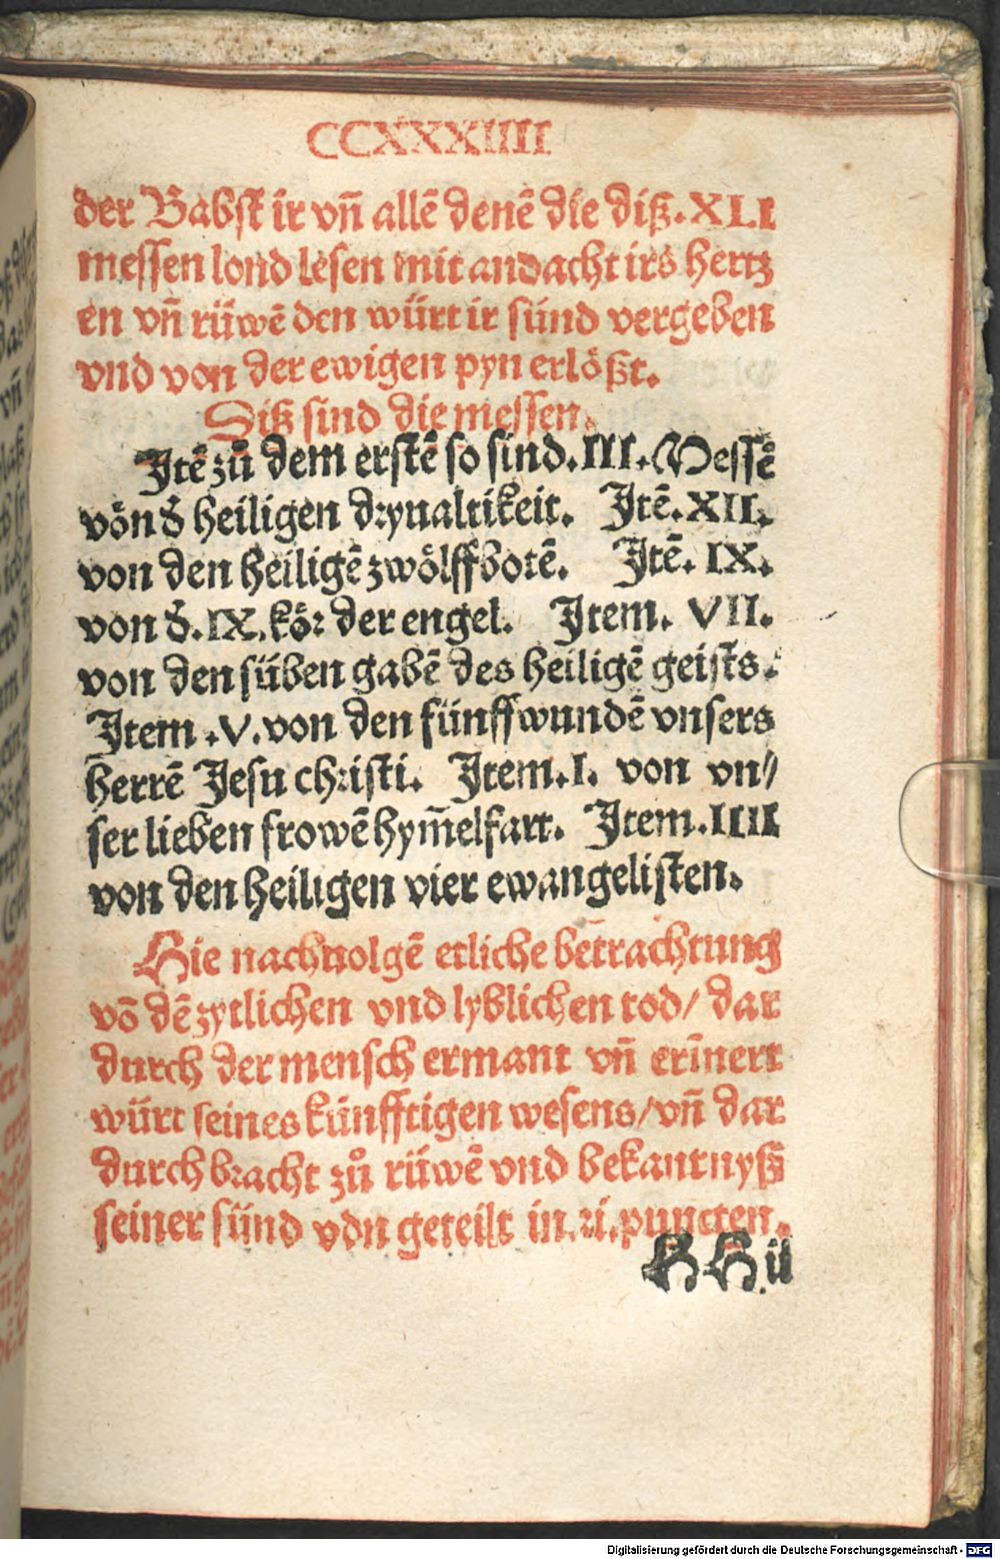 CCXXXIIII
der Babst ir vñ allē denē die diß. XLI
messen lond lesen mit andacht irs hertz
en vñ rüwē den würt ir sünd vergeben
vnd von der ewigen pyn erlößt.
Diß sind die messen.
Itē zů dem erstē so sind. III. Messē
von d̄ heiligen dryualtikeit. Itē. XII.
von den heiligē zwölffbotē. Itē. IX.
von d̄. IX. kör der engel. Item. VII.
von den süben gabē des heiligē geists.
Item .V. von den fünff wundē vnsers
herrē Jesu christi. Item. I. von vn/
ser lieben frowē hym̄elfart. Item. IIII
von den heiligen vier ewangelisten.
Hie nachuolgē etliche betrachtung
vō dē zytlichen vnd lyblichen tod/ dar
durch der mensch ermant vñ erīnert
würt seines künfftigen wesens/ vñ dar
durch bracht zů rüwē vnd bekantnyß
seiner sünd vdn geteilt in. xi. puncten.
HH ii
Digitalisierung gefördert durch die Deutsche Forschungsgemeinschaft - DFG